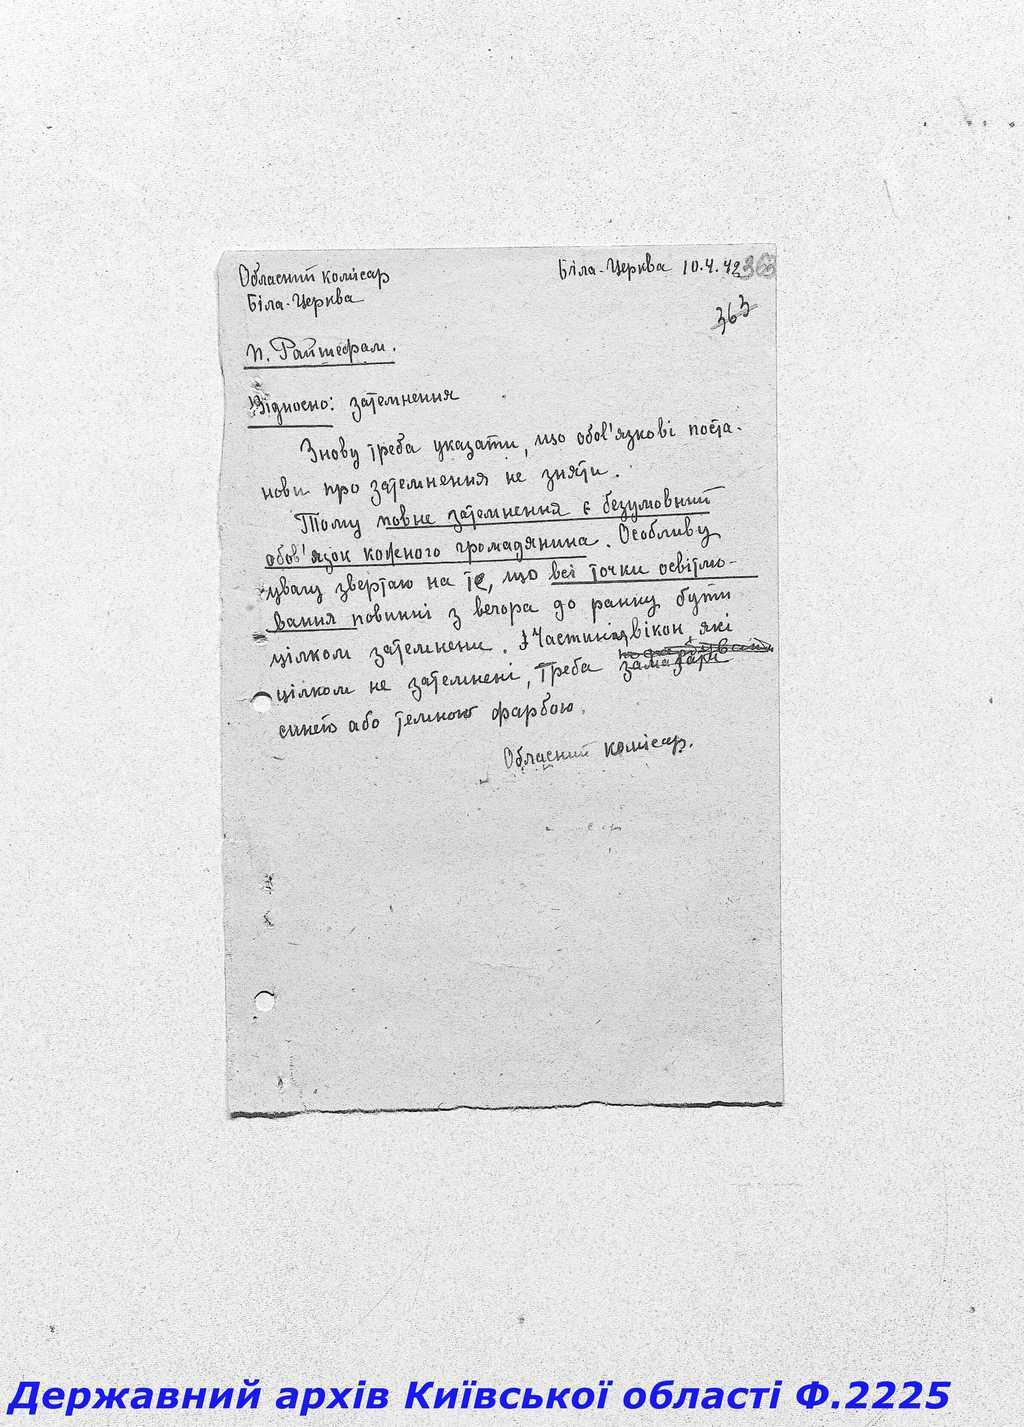 Обласний комісар
Біла-Церква 10.4.42 363
Біла-Церква
363
п. Райшефам.
Відносно: затемнення
Знову треба указати, що обов'язкові поста-
нови про затемнення не зняти.
Тому повне затемнення є безумовний
обов'язок кожного громадянина. Особливу
увагу звертаю на те, що всі точки освітлю-
вання повинні з вечора до ранку бути
цілком затемнени. Частини вікон, які
цілком не затемнені, треба замазати
синею або темною фарбою.
Обласний комісар.
Державний архів Київської області Ф.2225